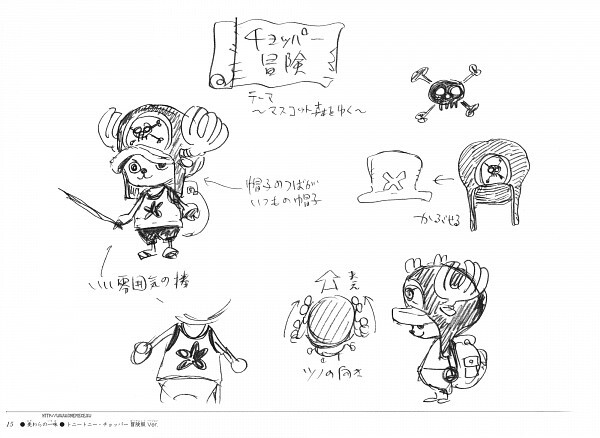 チョッパー
冒険
テーマ
～マスコット森をゆく～
帽子のつばが
いつもの帽子
かぶせる
いい雰囲気の棒
まえ
ツノの向き
15 ●麦わらの一味● トニートニー・チョッパー 冒険版 Ver.